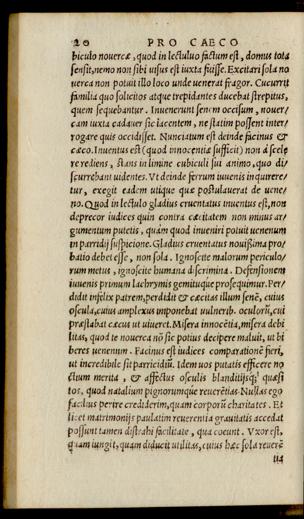 20 PRO CAECO
biculo nouercæ, quod in lectuluo factum est, domus tota
sensit, nemo non sibi uisus est iuxta fuisse. Excitari sola no
uerca non potuit illo loco unde uenerat fragor. Cucurrit
familia quo solicitos atque trepidantes ducebat strepitus,
quem sequebantur. Inuenerunt senem occisum, nouer/
cam iuxta cadauer sic iacentem, ne statim possent inter/
rogare quis occidisset. Nunciatum est deinde facinus &
cæco. Inuentus est (quod innocentia sufficit) non à scele
re rediens, stans in limine cubiculi sui animo, quo di/
scurrebant uidentes. Vt deinde ferrum iuuenis inquirere/
tur, exegit eadem utique quæ postulauerat de uene/
no. Quod in lectulo gladius cruentatus inuentus est, non
deprecor iudices quin contra cæcitatem non minus ar/
gumentum putetis, quàm quod inueniri potuit uenenum
in parridij suspicione. Gladius cruentatus nouissima pro/
batio debet esse, non sola. Ignoscite malorum periculo/
rum metus, ignoscite humana discrimina. Defensionem
iuuenis primum lachrymis gemituque prosequimur. Per/
didit infelix patrem, perdidit & cæcitas illum senē, cuius
oscula, cuius amplexus imponebat vulnerib. oculorū, cui
præstabat cæcus ut uiueret. Misera innocētia, misera debi
litas, quod te nouerca nō sic potius decipere maluit, ut bi
beres uenenum. Facinus est iudices comparationē fieri,
ut incredibile sit parricidiū. Idem uos putatis efficere no
ctium merita, & affectus osculis blanditijsq́; quæsi
tos, quod natalium pignorumque reuerētias? Nullas ego
facilius perire crediderim, quam corporū charitates. Et
licet matrimonijs paulatim reuerentia grauitatis accedat
possunt tamen distrahi facilitate, qua coeunt. Vxor est,
quam iungit, quam diducit utilitas, cuius hæc sola reuerē
tia